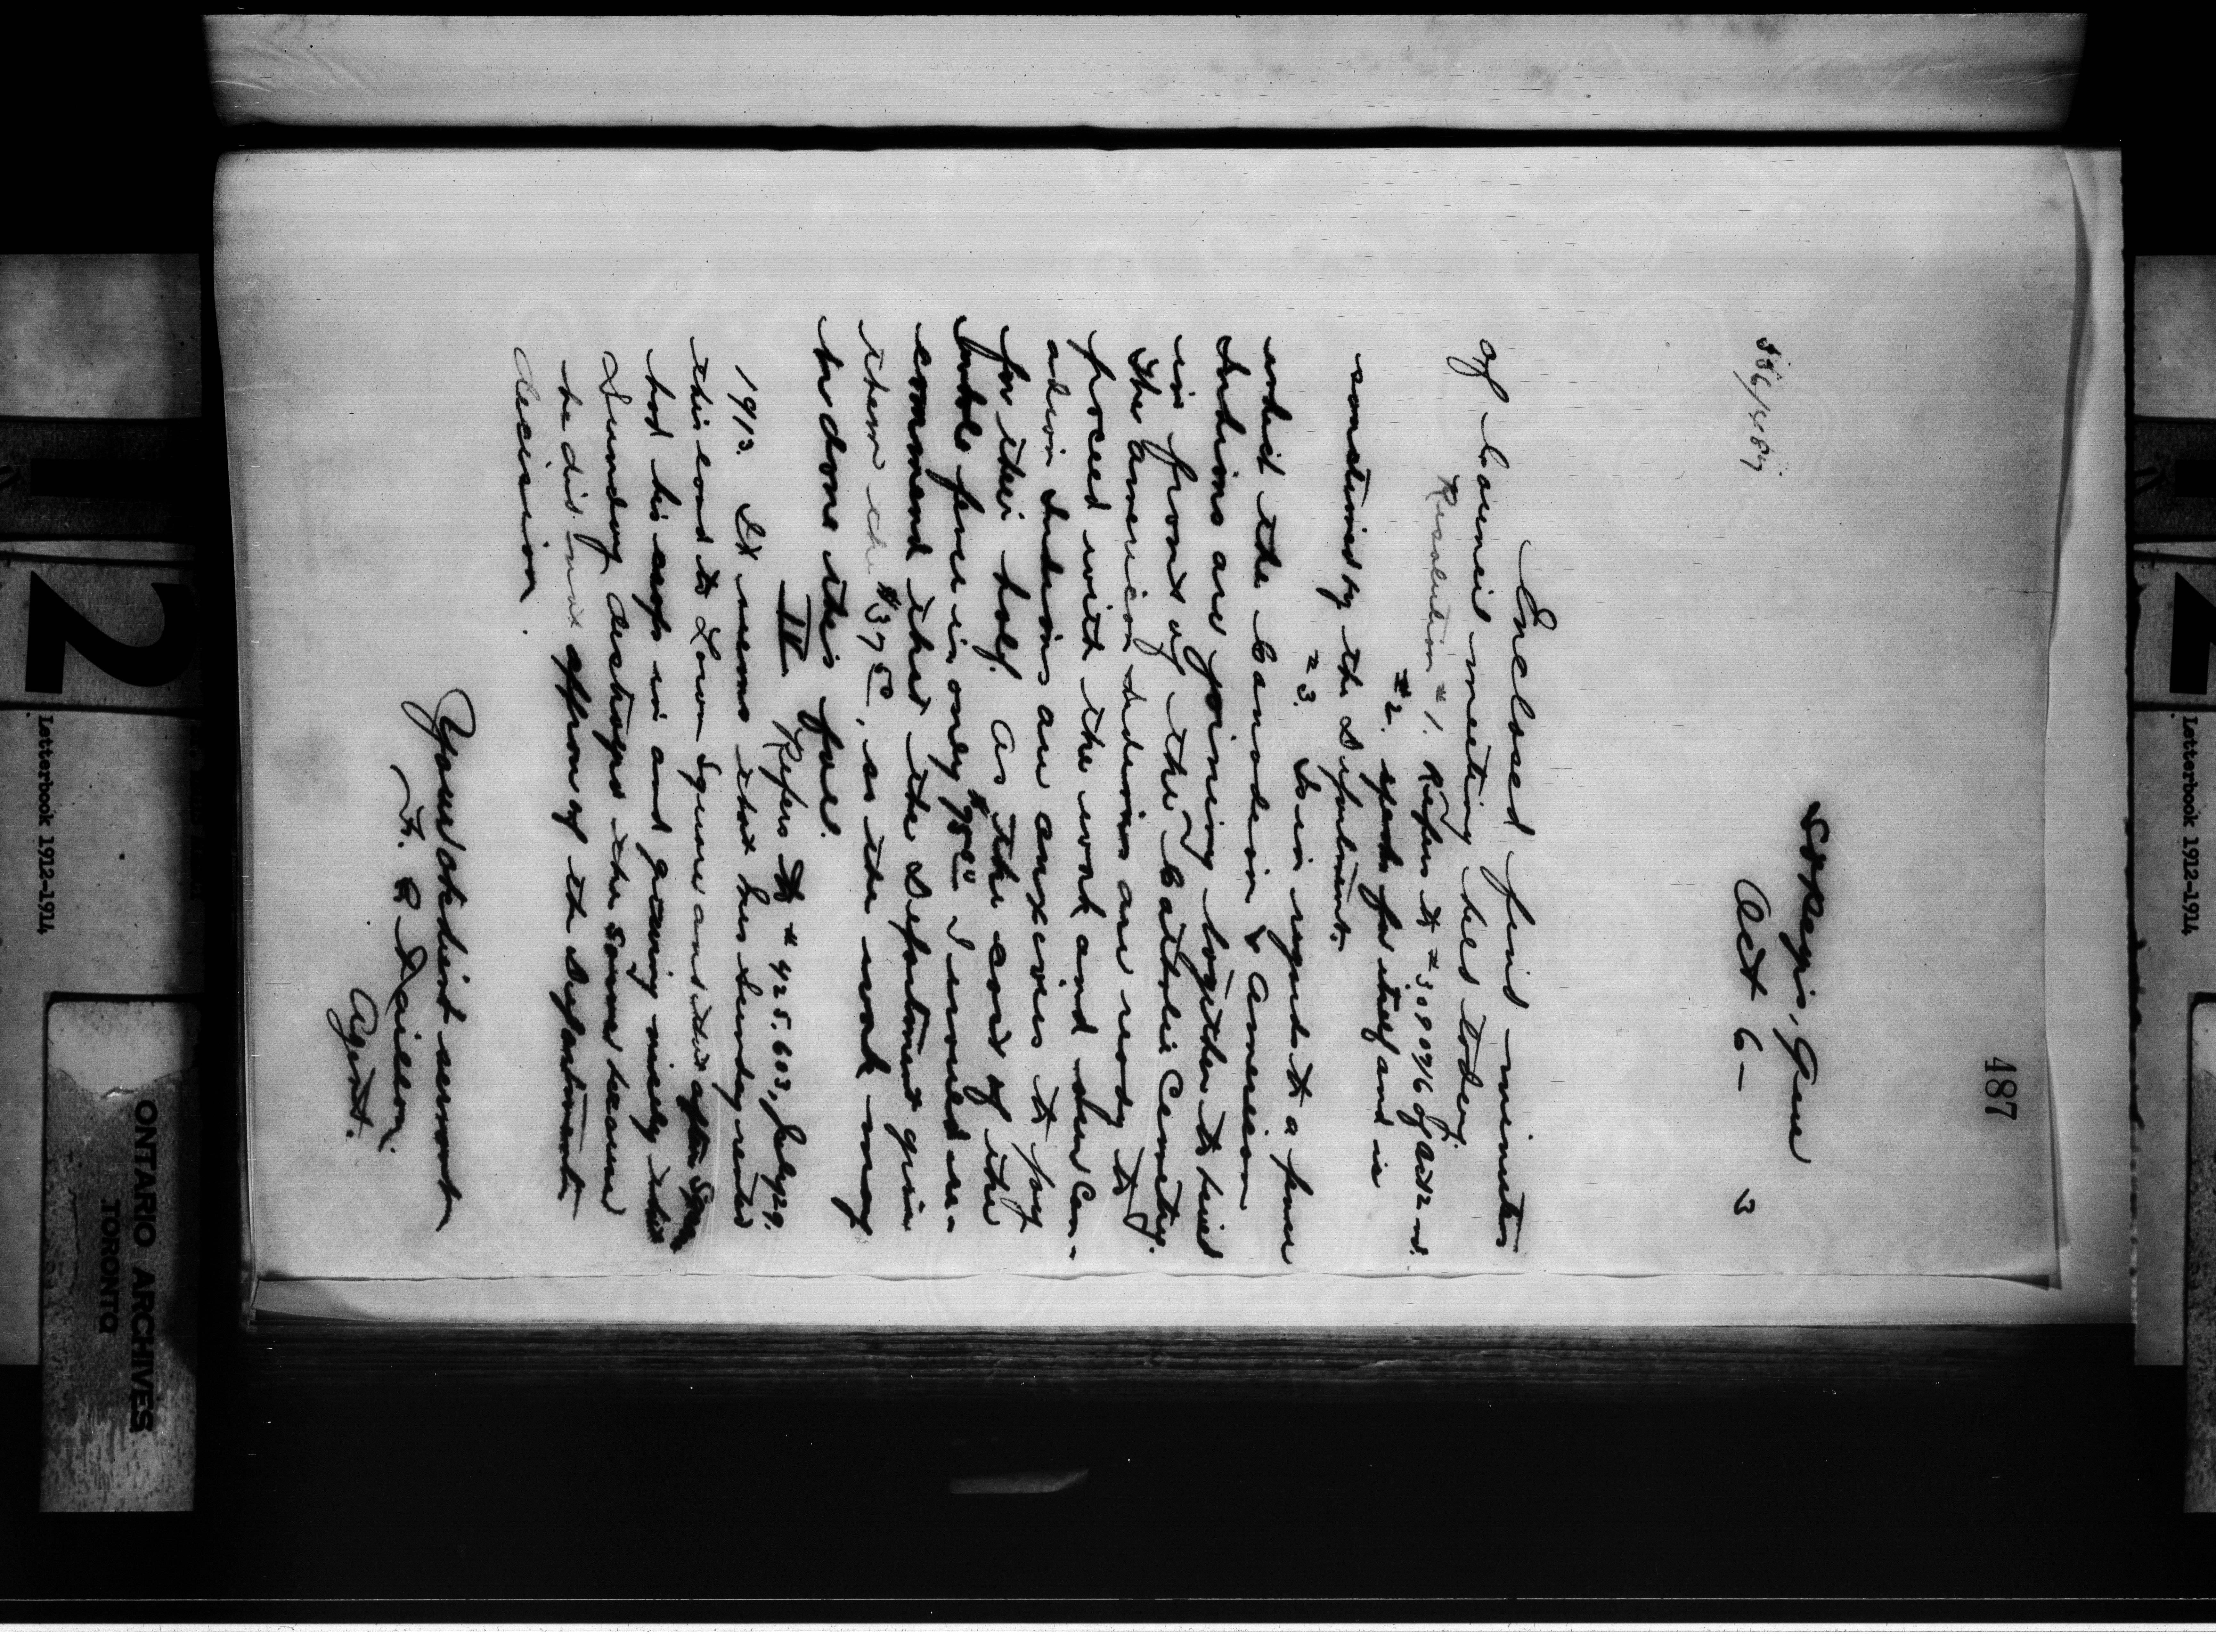 487
Sarnia, Reserve
Oct 6 - 3
Enclosed find minutes
of Council meeting held today.
Resolution #1. Refers to # of Oct 2nd.
#2. speaks for itself and is
sanctioned by the Department.
#3. Is in regards to a fence
which the Canadian & American
Indians are joining together to build
in front of the Catholic Cemetry.
The American Indians are ready to
proceed with the work and our Can-
adian Indians are anxious to pay
for their half. As the cost of the
whole fence is only $75.00 I would re-
commend that the Department give
them the $37.50, so the work may
be done this fall.
IV Refers to # 425.603, July 29.
1913. It seems that Levi Sunday rented
this land to Lawson Squire and that after Squire
had his crops in and growing nicely this
Sunday destroys the same because
he did not approve of the Department's
decision.
Your obedient servant
Agent.
2
Letterbook 1912-1914
ONTARIO ARCHIVES
TORONTO
2
Letterbook 1912-1914